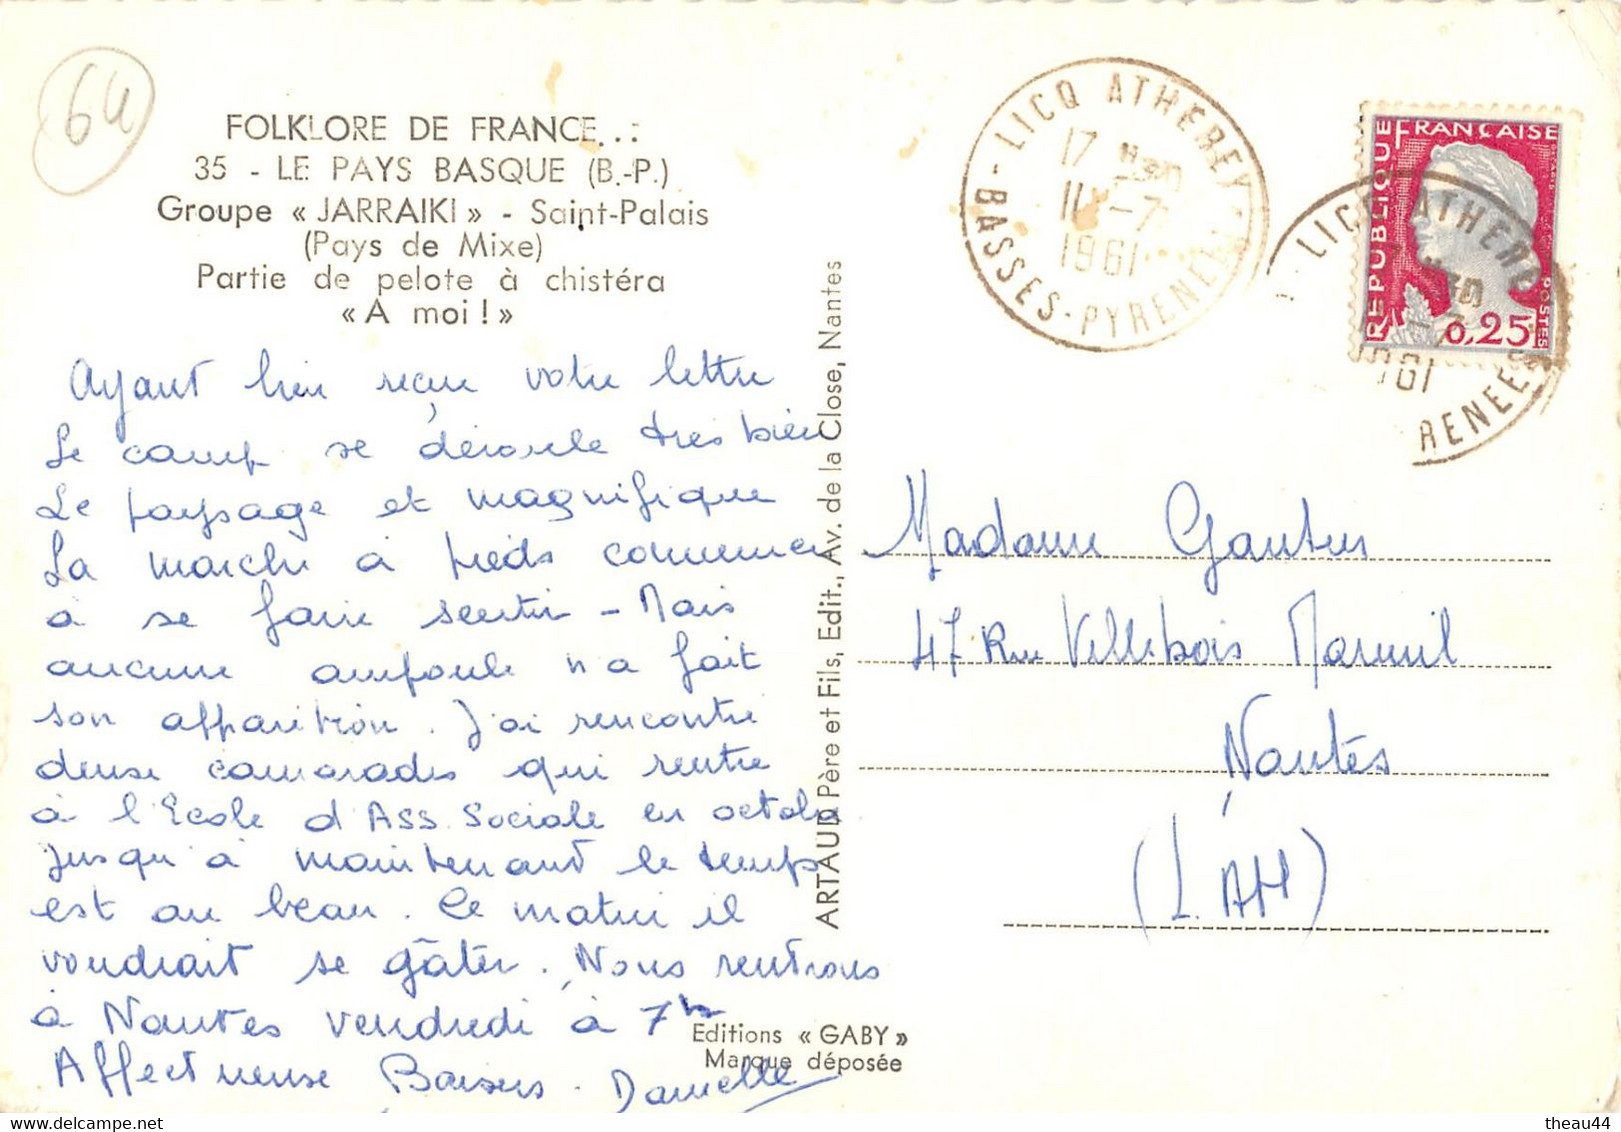 64
FOLKLORE DE FRANCE..:
35 - LE PAYS BASQUE (B.-P.)
Groupe « JARRAIKI » - Saint-Palais
(Pays de Mixe)
Partie de pelote à chistéra
« A moi ! »
Ayant bien reçue votre lettre
Le camp se déroule très bien
Le paysage et magnifique
La marche à pieds commence
à se faire sentir - Mais
aucune ampoule n a fait
son apparition. J'ai rencontre
deux camarades qui rentre
à l'Ecole d'Ass. Sociale en octobre
jusqu'à maintenant le temps
est au beau. Ce matin il
voudrait se gâter. Nous rentrons
à Nantes vendredi à 7h
Affectueuse Baisers. Danielle
ARTAUD Père et Fils, Edit., Av. de la Close, Nantes
Editions « GABY »
Marque déposée
LICQ ATHEREY
17 H30
11 -7
1961
BASSES-PYRENEES
REPUBLIQUE FRANÇAISE
POSTES
0,25
LICQ ATHEREY
1961
RENEES
Madame Gautier
47 Rue Villebois Mareuil
Nantes
(L. Atl)
theau44